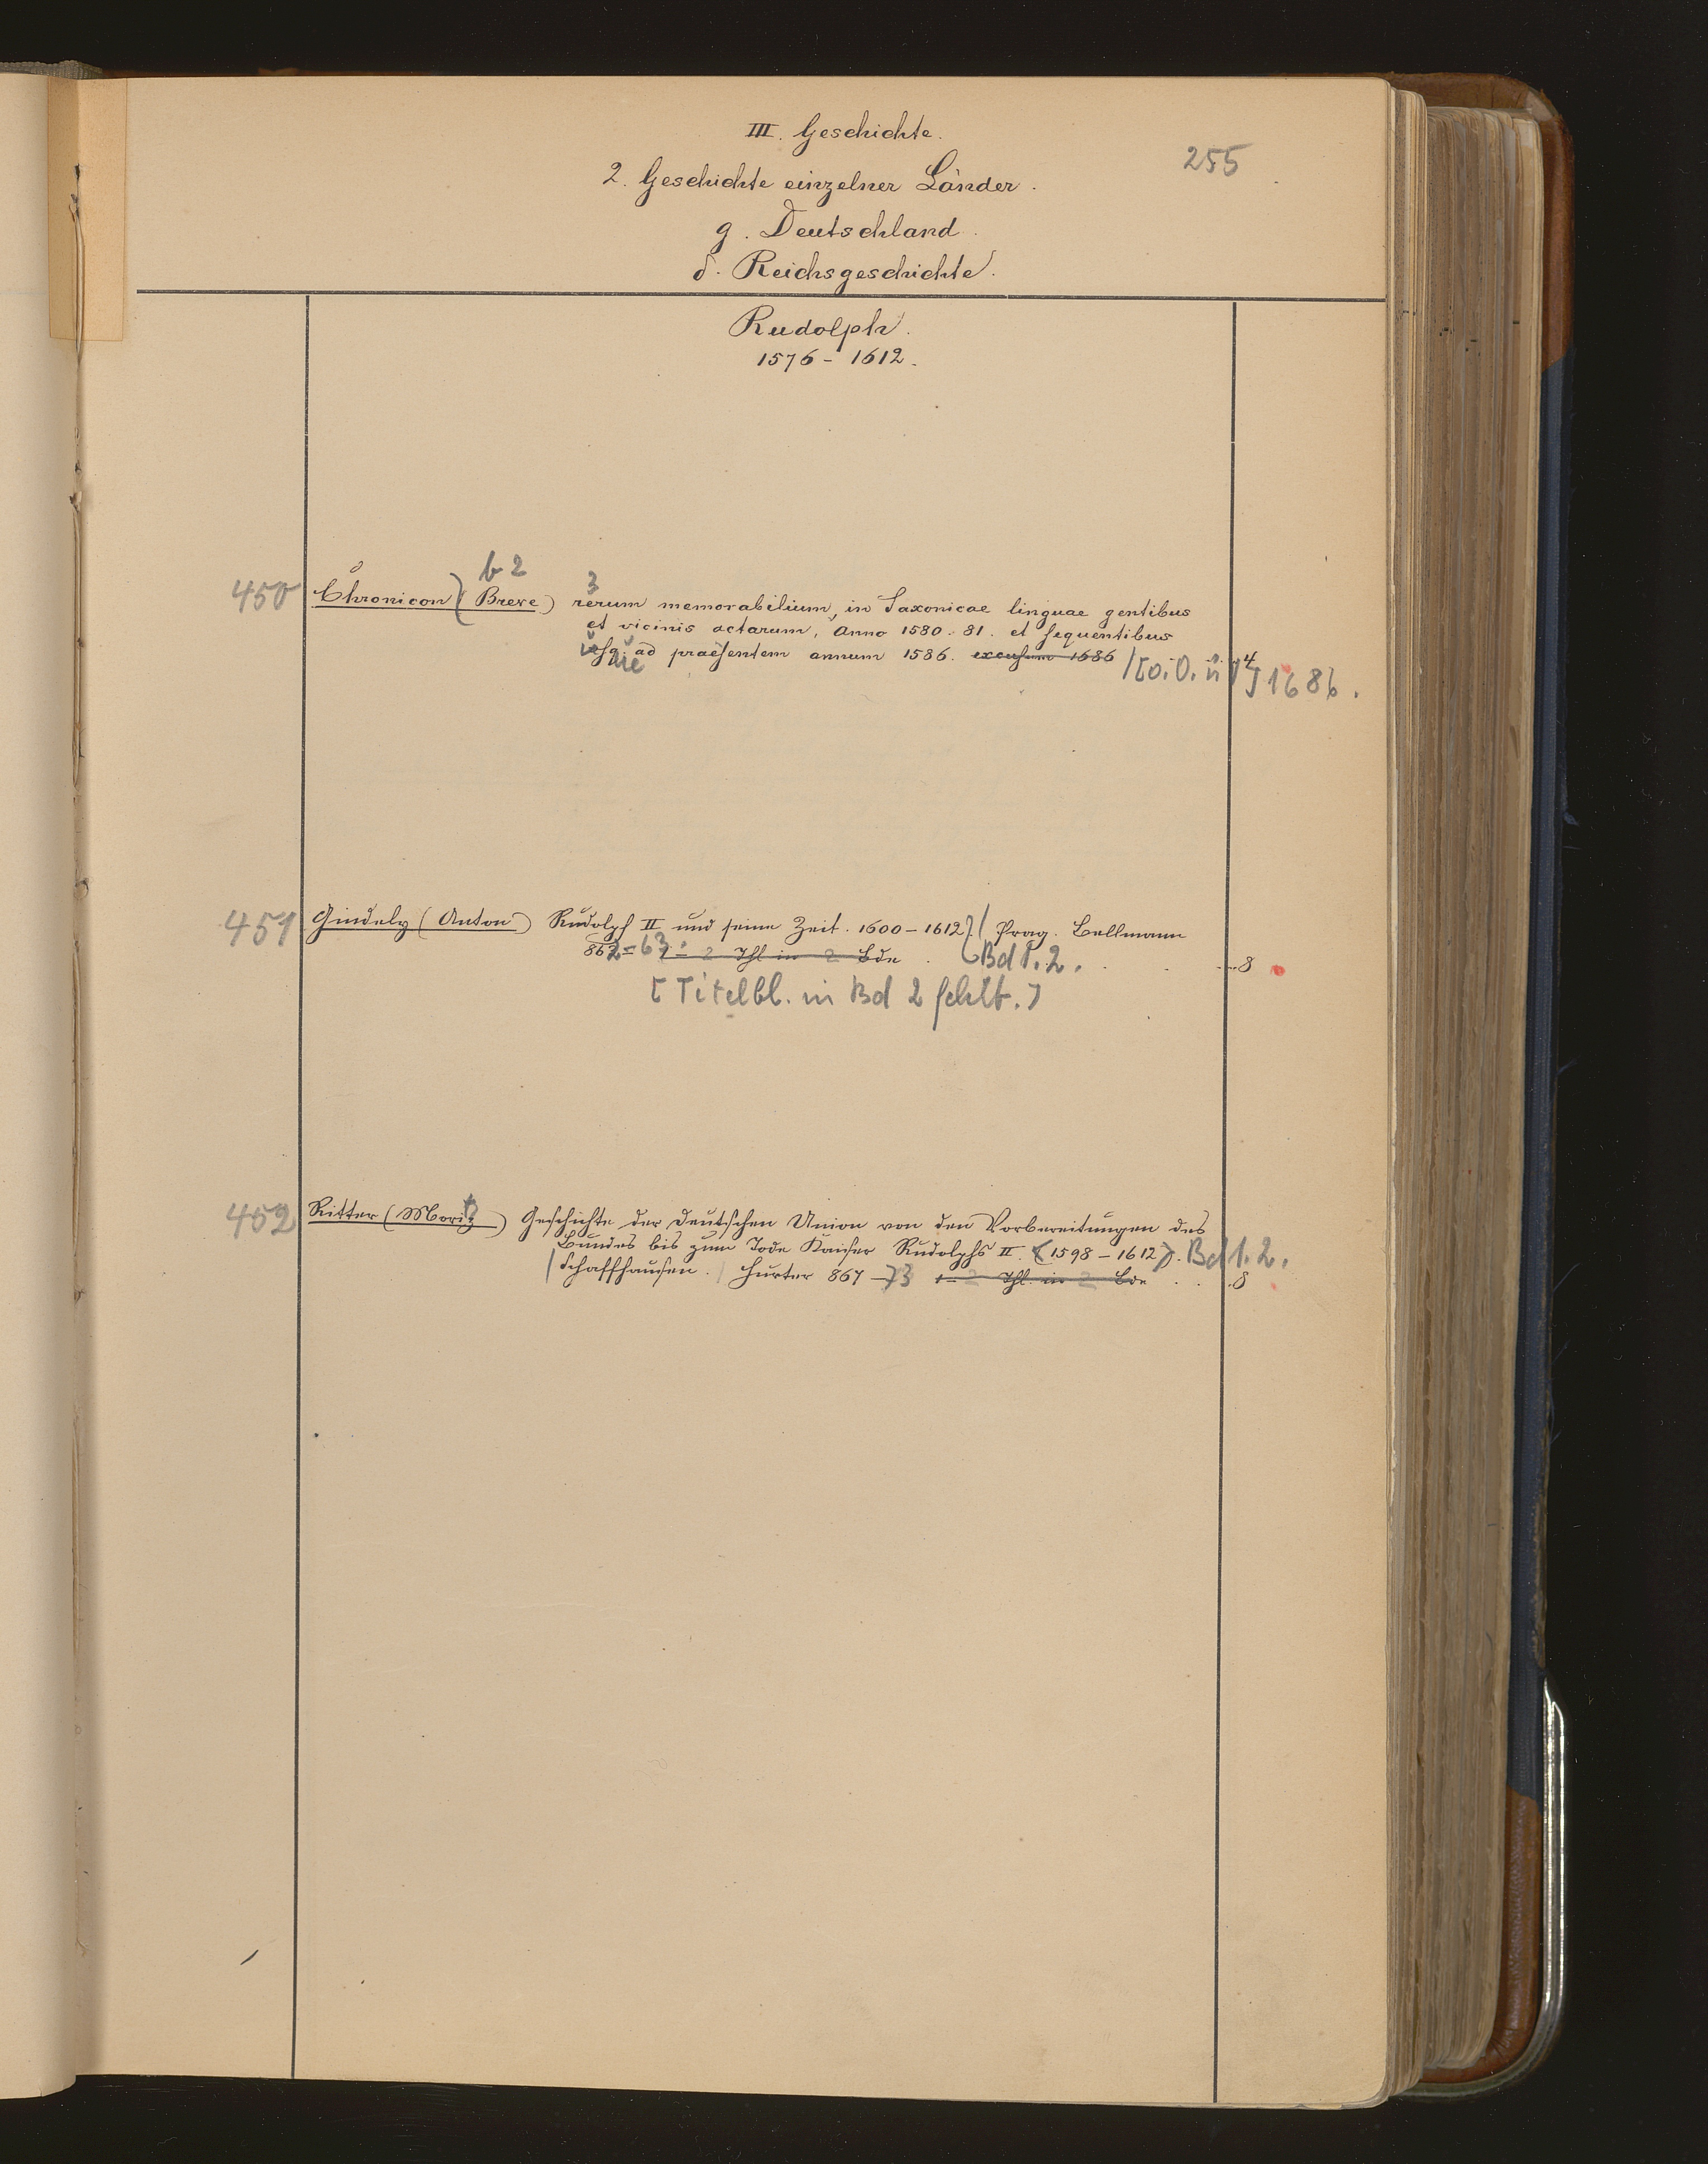 255
III. Geschichte.
2. Geschichte einzelner Länder.
g. Deutschland.
δ. Reichsgeschichte.
Rudolph.
1576 - 1612.
b 2 3
450 Chronicon (Breve) rerum memorabilium, in Saxonicae linguae gentibus
et vicinis actarum, Anno 1580. 81. et sequentibus
usque ad praesentem annum 1586. excusum 1686 / [o. O. u. ] 4 1686.
451 Gindely (Anton) Rudolph II und seine Zeit. 1600 - 1612. / Prag. Bellmann
862 = 63. 1 - 2 Thl in 2 Bde . Bd 1. 2. . . . 8
[Titelbl. in Bd 2 fehlt.]
452 Ritter (Moritz) Geschichte der deutschen Union von den Vorbereitungen des
Bundes bis zum Tode Kaiser Rudolphs II. (1598 - 1612). Bd 1. 2.
/ Schaffhausen. / Hurter 867 - 73 1 - 2 Thl. in 2 Bde . . . 8